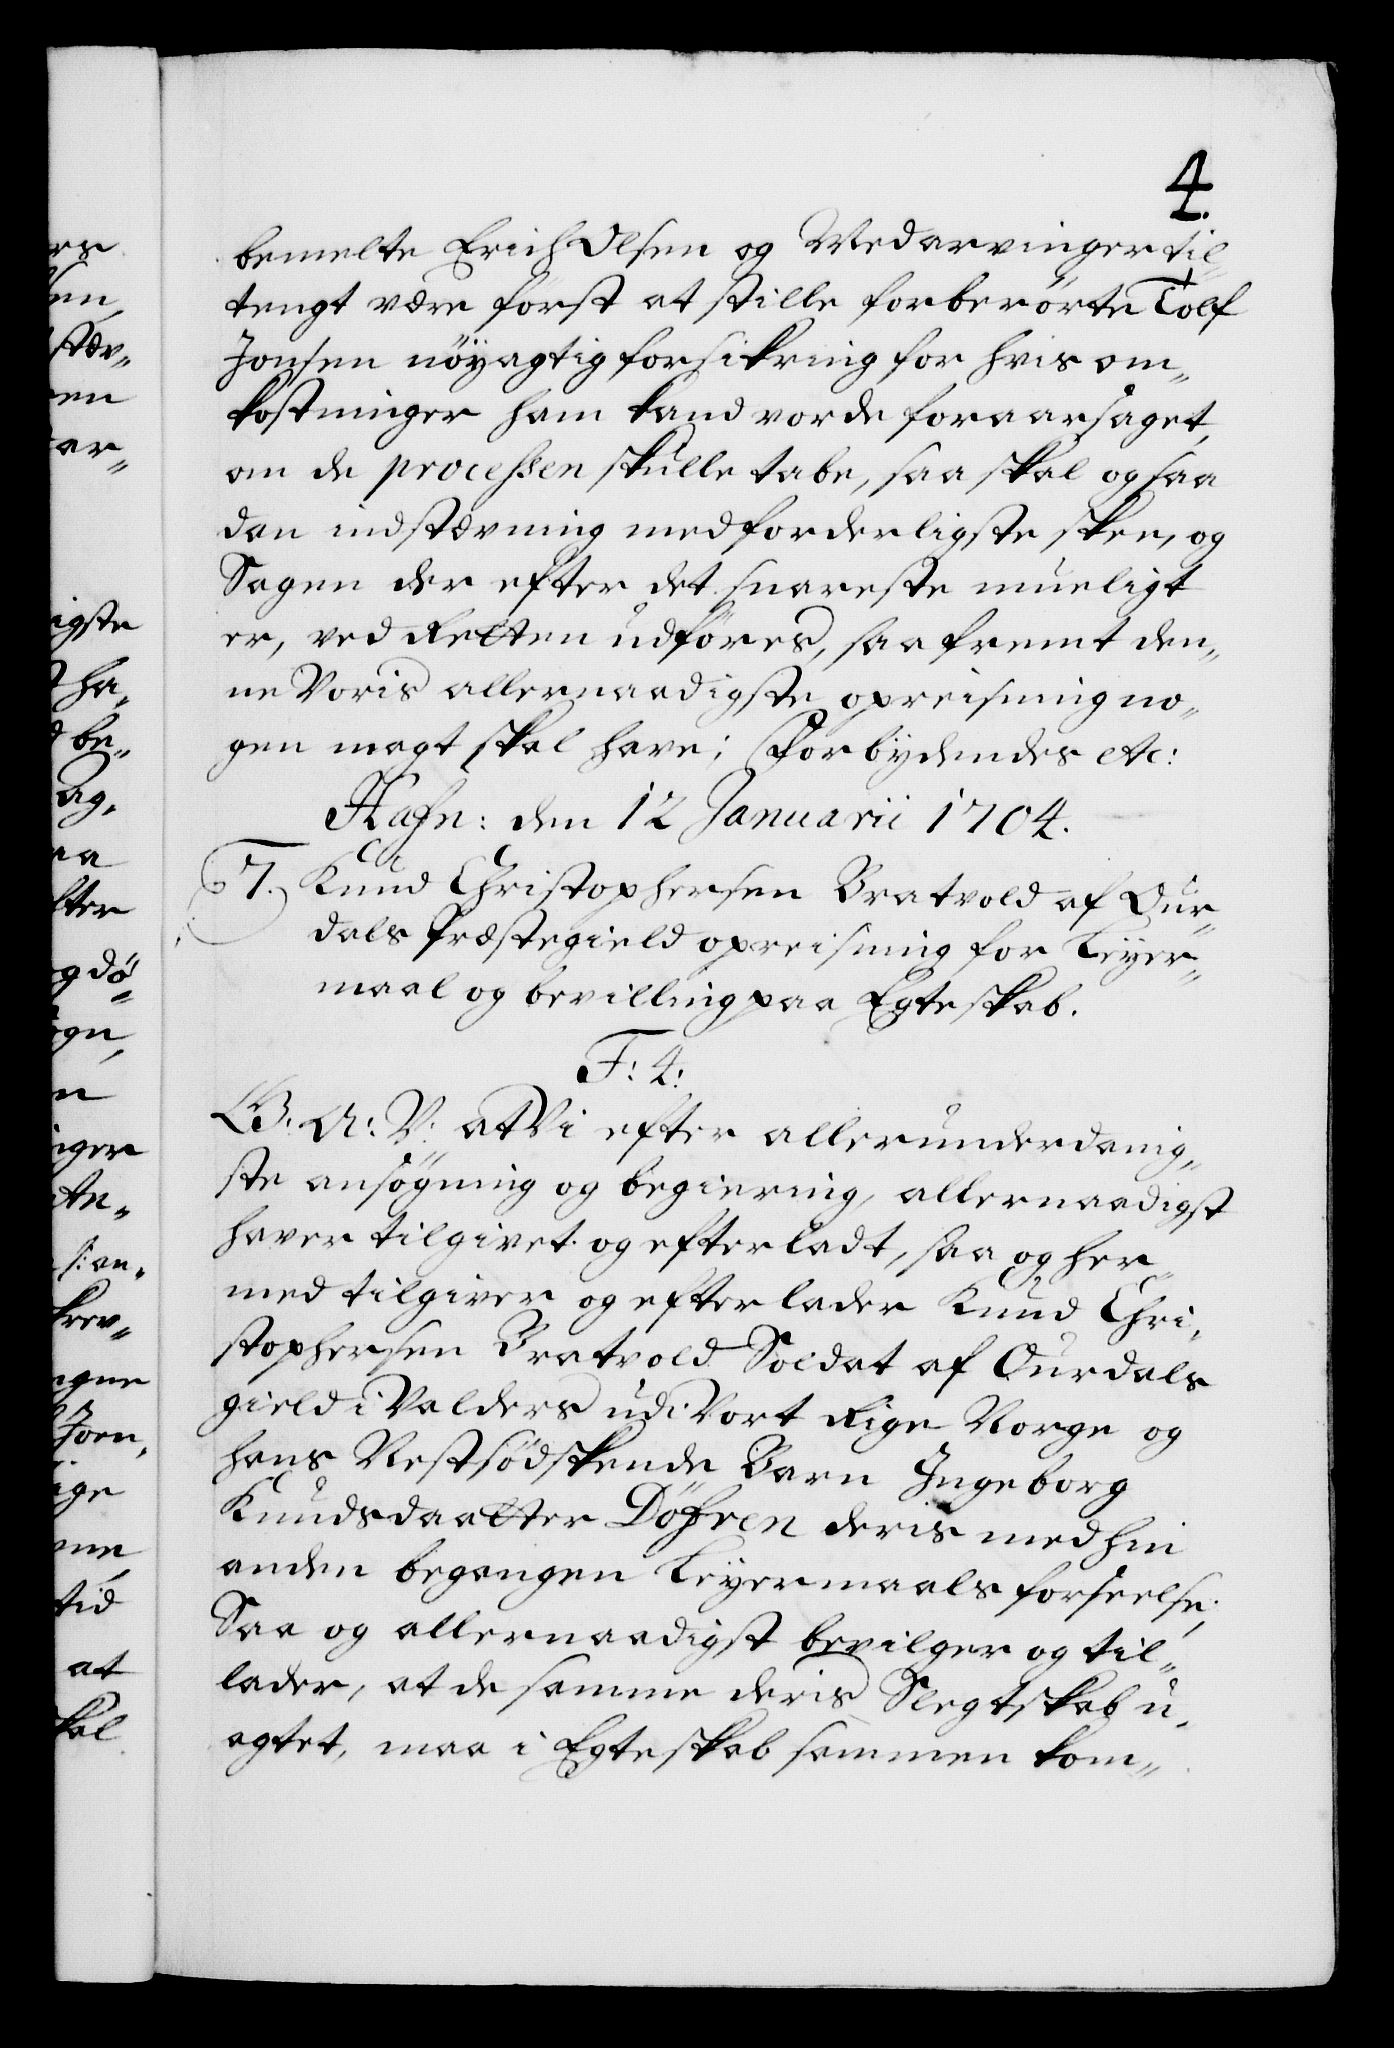 4.
bemelte Erich Olsen og Medarvinger til„
tengt være först at stille forberörte Tolf
Jonsen nöÿagtig forsikring for hvis om„
kostninger ham kand vorde foraarsaget,
om de processen skulle tabe, saa skal og saa
dan indstævning med forderligste skee, og
Sagen der efter det snareste mueligt
er, ved Retten udföres, saafremt den„
ne Voris allernaadigste opreisning no„
gen magt skal have; Forbÿdendes etc:
Hafn: den 12 Januarii 1704.
7. Knud Christophersen Bratvold af Our„
dals Præstegield opreisning for Leÿer„
maal og bevilling paa Egteskab.
F: 4:
G. A: V: at Vi efter allerunderdanig„
ste ansögning og begiering, allernaadigst
haver tilgivet og efterladt, saa og her„
med tilgiver og efterlader Knud Chri„
stophersen Bratvold Soldat af Ourdals
gield i Valders udi Vort Rige Norge og
hans Nestsödskende Barn Ingeborg
Knudsdaatter Döfren deris med hin
anden begangen Leÿermaals forseelse;
Saa og allernaadigst bevilger og til„
lader, at de samme deris Slegtskab u„
agtet, maa i Egteskab sammen kom„